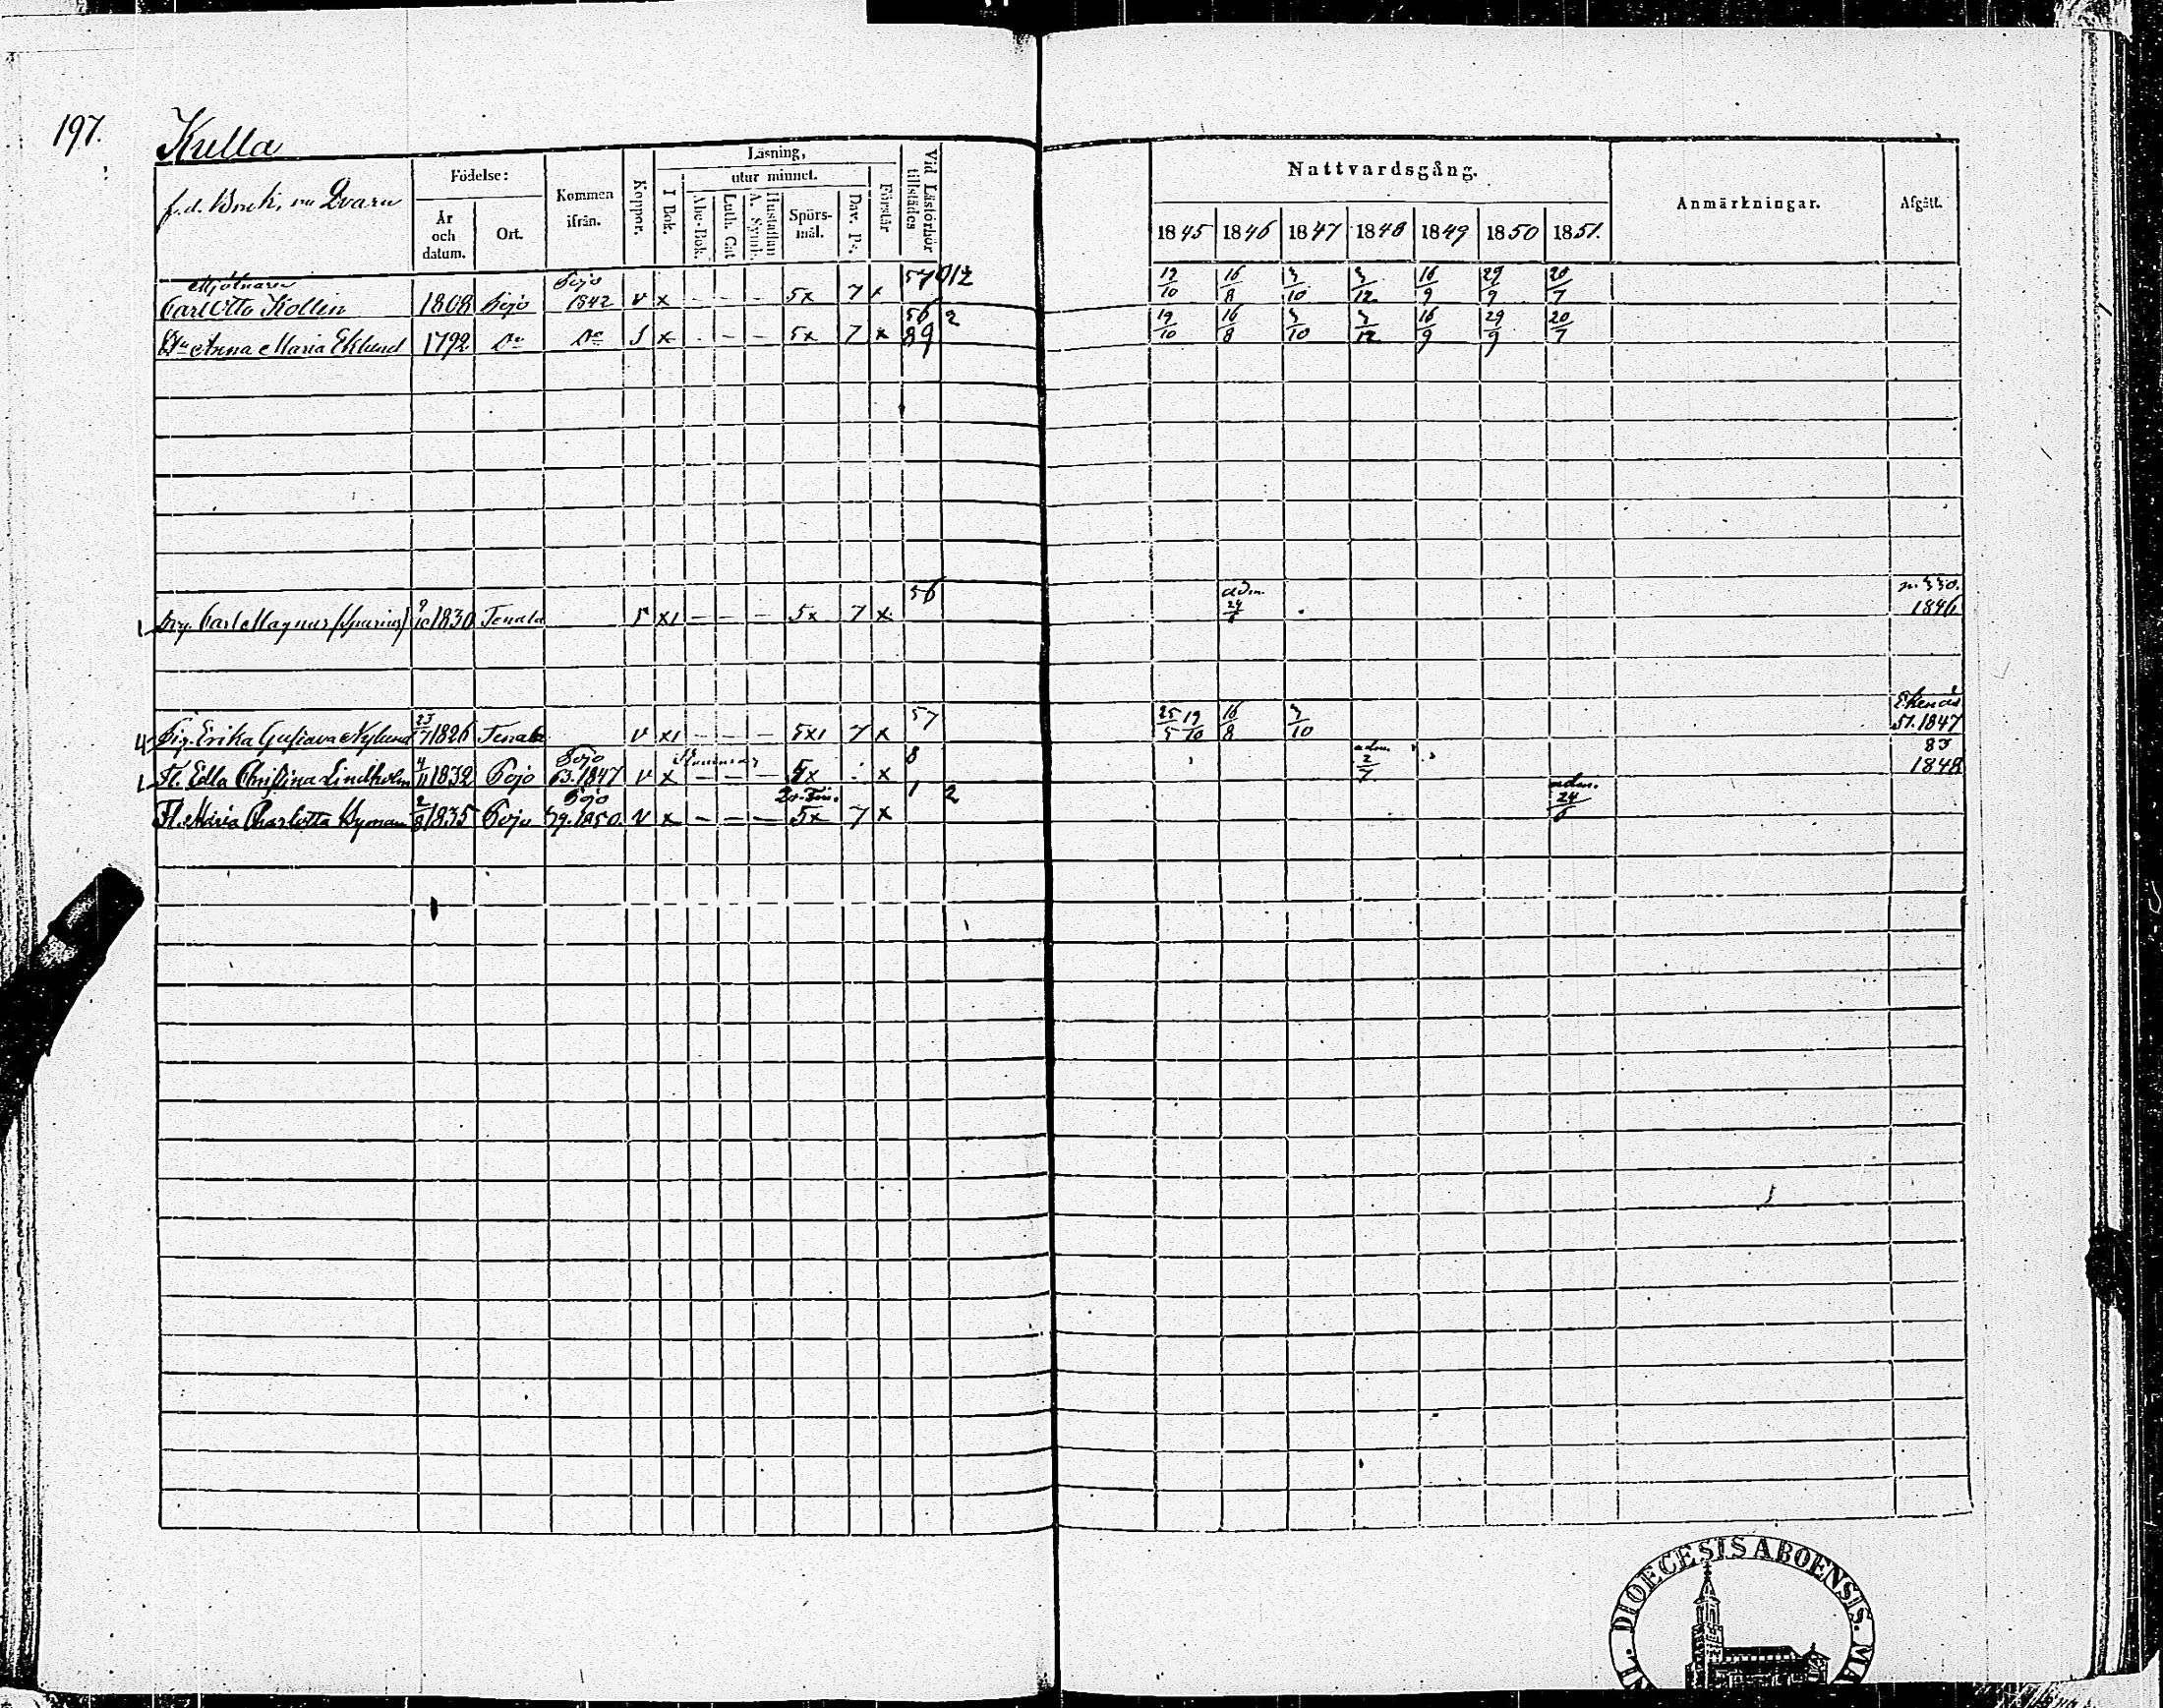 197.
Kulla
f.d. Bruk, nu Qvarn
Födelse:
År och datum.
Ort.
Kommen ifrån.
Koppor.
Läsning,
I Bok.
utur minnet.
Abc-Bok.
Luth. Cat
Hustaflan A. Symb.
Spörs-mål.
Dav. Ps.
Förstår
Vid Läsförhör tillstädes
Nattvardsgång.
1845 1846 1847 1848 1849 1850 1851.
Anmärkningar.
Afgått.
Mjölnaren Pojo 57
Carl Otto Kollin 1808 Pojo 1842 v x - - - 5x 7 x 19/10 16/8 3/10 3/12 16/9 29/9 20/7
56 2
Hu Anna Maria Eklund 1792 Do Do S x - - - 5x 7 x 89 19/10 16/8 3/10 3/12 16/9 29/9 20/7
56 adm. n. 330.
1 Drg. Carl Magnus (Spurius) 9/10 1830 Tenala x1 - - - 5x 7 x 1846
57 Ekenäs
4 Pig. Erika Gustava Nylund 23/7 1826 Tenala v x1 - - - 5x1 7 x 25/5 19/10 16/8 3/10 51. 1847
Pojo 8 adm. 83
1 Fl. Edla Christina Lindholm 4/11 1832 Pojo 63. 1847 v x - - - x 2/7 1848
Pojo 1 2 adm.
Fl. Maria Charlotta Nyman 1835 Pojo 1850. v x - - - 5x 7 x
DIOECESIS ABOENSIS.